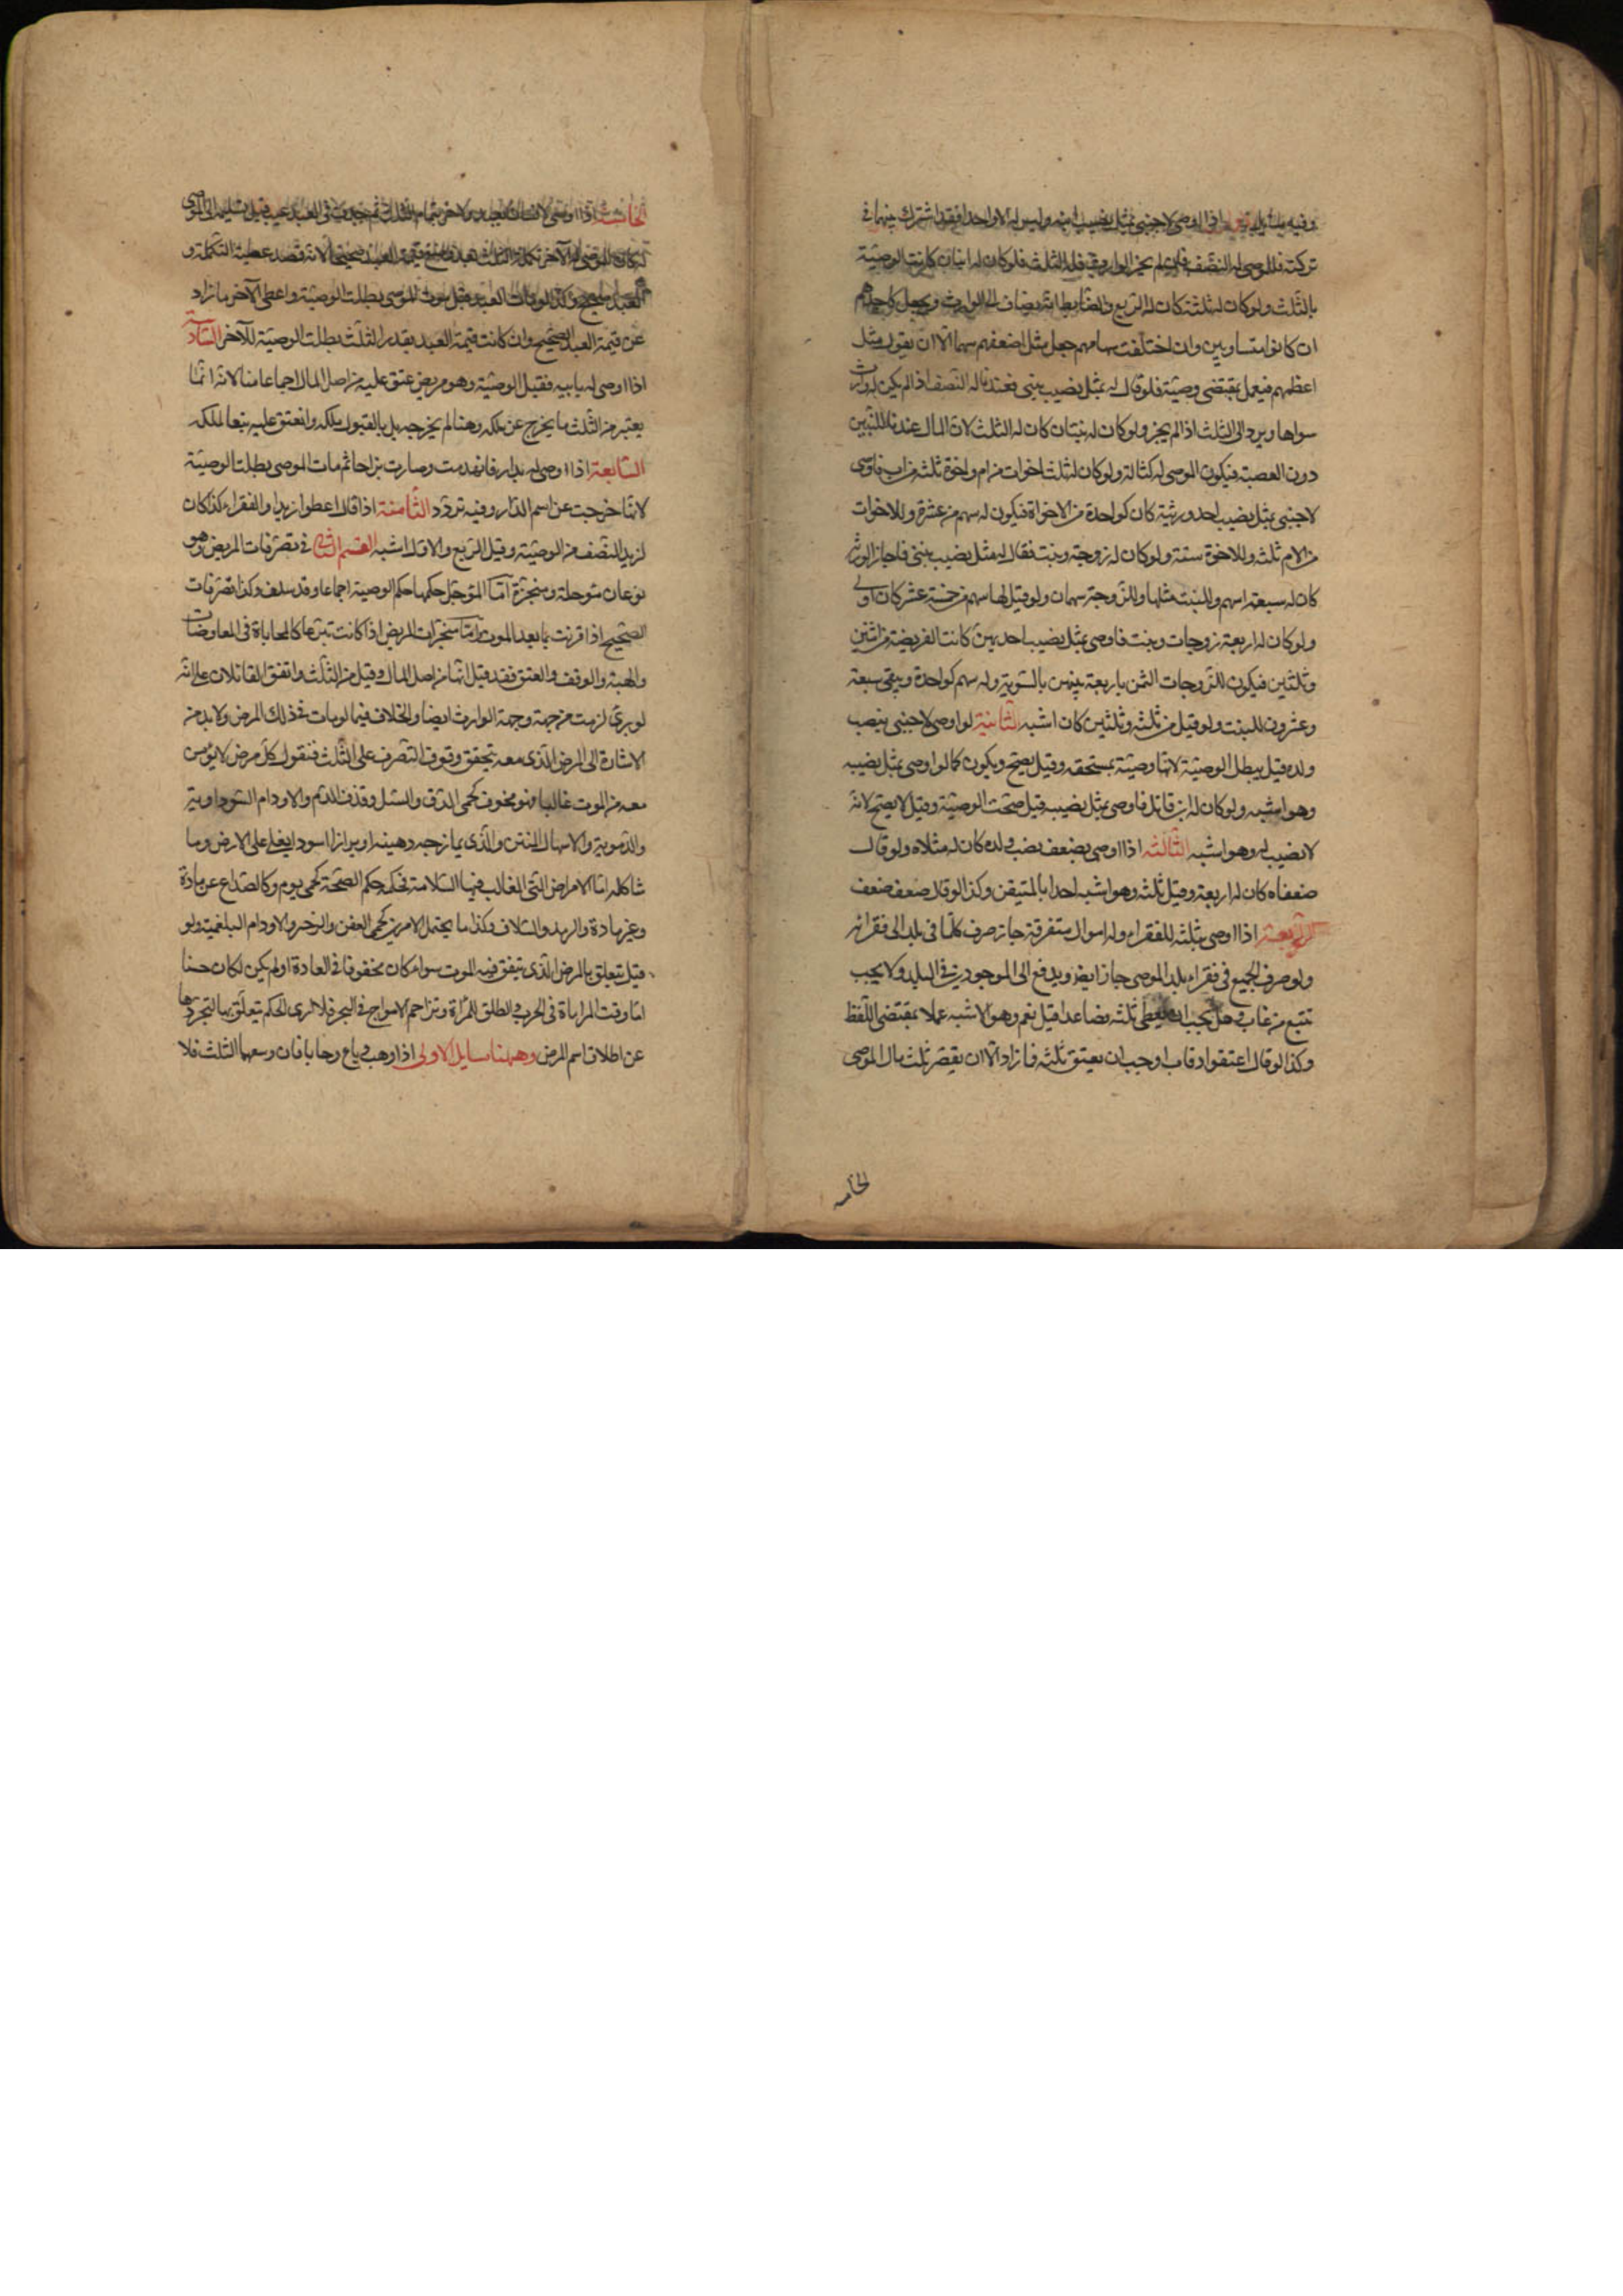 وفيه مسائل الاولى اذا اوصى لاجنبى بمثل نصيب ابنه وليس له الا واحد فقد اشترك بينهما فى
تركته فللموصى له النصف فان لم يجز الوارث فله الثلث فلو كان له ابنان كانت الوصية
بالثلث ولو كان له ثلثة كان له الربع والضابط انه يضاف الى الوارث ويجعل كاحدهم
ان كانوا متساويين وان اختلفت سهامهم جعل مثل اضعفهم سهما الا ان يقول مثل
اعظمهم فيعمل بمقتضى وصيته فلو قال له بمثل نصيب بنتى فعندنا له النصف اذا لم يكن له وارث
سواها ويرد الى الثلث اذا لم يجز ولو كان له بنتان كان له الثلث لان المال عندنا للبنتين
دون العصبة فيكون الموصى له كثالثة ولو كان له ثلث اخوات من ام واخوة ثلثة من اب فاوصى
لاجنبى بمثل نصيب احد ورثته كان كواحدة من الاخوات فيكون له سهم من عشرة وللاخوات
من الام ثلثة وللاخوة ستة ولو كان له زوجة وبنت فقال له مثل نصيب بنتى فاجاز الورثة
كان له سبعة اسهم وللبنت مثلها وللزوجة سهمان ولو قيل لها سهم من خمسة عشر كان اولى
ولو كان له اربعة زوجات وبنت فاوصى بمثل نصيب احديهن كانت الفريضة من اثنين
وثلثين فيكون للزوجات الثمن باربعة بينهن بالسوية وله سهم كواحدة ويبقى سبعة
وعشرون للبنت ولو قيل من ثلثة وثلثين كان اشبه الثانية لو اوصى لاجنبى بنصيب
ولده قيل يبطل الوصية لانها وصية بمستحقه وقيل يصح ويكون كما لو اوصى بمثل نصيبه
وهو اشبه ولو كان له ابن قاتل فاوصى بمثل نصيبه قيل صحت الوصية وقيل لا يصح لانه
لا نصيب له وهو اشبه الثالثة اذا اوصى بضعف نصيب ولده كان له مثلاه ولو قال
ضعفاه كان له اربعة وقيل ثلثة وهو اشبه اخذا بالمتيقن وكذا لو قال ضعف ضعف
الرابعة اذا اوصى بثلثه للفقراء وله اموال متفرقة جاز صرف كلما فى بلد الى فقرائه
ولو صرف الجميع فى فقراء بلد الموصى جاز ايضا ويدفع الى الموجودين فى البلد ولا يجب
تتبع من غاب وهل يجب ان يعطى ثلثة فصاعدا قيل نعم وهو الاشبه عملا بمقتضى اللفظ
وكذا لو قال اعتقوا رقاب اوجب ان يعتق ثلثة فما زاد الا ان يقصر ثلث مال الموصى
الخامسه
الخامسة اذا اوصى لانسان بعبد ولاخر بتمام الثلث ثم حدث فى العبد عيب قبل تسليمه الى الموصى
له كان للموصى له الآخر تكملة الثلث بعد وضع قيمة العبد صحيحا لانه قصد عطية التكملة و
العبد صحيح وكذا لو مات العبد قبل موت الموصى بطلت الوصية واعطى الآخر ما زاد
عن قيمة العبد الصحيح وان كانت قيمة العبد بقدر الثلث بطلت الوصية للآخر السادسة
اذا اوصى له بابيه فقبل الوصية وهو مريض عتق عليه من اصل المال اجماعا منا لانه انما
يعتبر من الثلث ما يخرج عن ملكه وهنا لم يخرجه بل بالقبول ملكه وانعتق عليه تبعا لملكه
السابعة اذا اوصى له بدار فانهدمت وصارت براحا ثم مات الموصى بطلت الوصية
لانها خرجت عن اسم الدار وفيه تردد الثامنة اذا قال اعطوا زيدا والفقراء كذا كان
لزيد النصف من الوصية وقيل الربع والاول اشبه القسم الثانى فى تصرفات المريض وهو
نوعان مؤجلة ومنجزة اما المؤجل حكمها حكم الوصية اجماعا وقد سلف وكذا تصرفات
الصحيح اذا قرنت بما بعد الموت اما منجزات المريض اذا كانت تبرعا كالمحاباة فى المعاوضات
والهبة والوقف والعتق فقد قيل انها من اصل المال وقيل من الثلث واتفق القائلان على انه
لو برئ لزمت من جهته وجهة الوارث ايضا والخلاف فيما لو مات فى ذلك المرض ولا بد من
الاشارة الى المرض الذى معه يتحقق وقوف التصرف على الثلث فنقول كل مرض لا يؤمن
معه من الموت غالبا فهو مخوف كحمى الدق والسل وقذف الدم والاورام السوداوية
والدموية والاسهال المنتن والذى يمازجه دهنية او براز اسود يغلى على الارض وما
شاكله اما الامراض التى الغالب فيها السلامة فحكمه حكم الصحة كحمى يوم وكالصداع عن مادة
وغير مادة والرمد والسلاق وكذا ما يحتمل الامرين كحمى العفن والزحير والاورام البلغمية ولو
قيل تتعلق بالمرض الذى يتفق فيه الموت سواء كان مخوفا فى العادة او لم يكن لكان حسنا
اما وقت المراماة فى الحرب والطلق للمراة وتزاحم الامواج فى البحر فلا ارى الحكم يتعلق بها لتجردها
عن اطلاق اسم المرض وههنا مسايل الاولى اذا وهب وباع وحابا فان وسعهما الثلث فلا